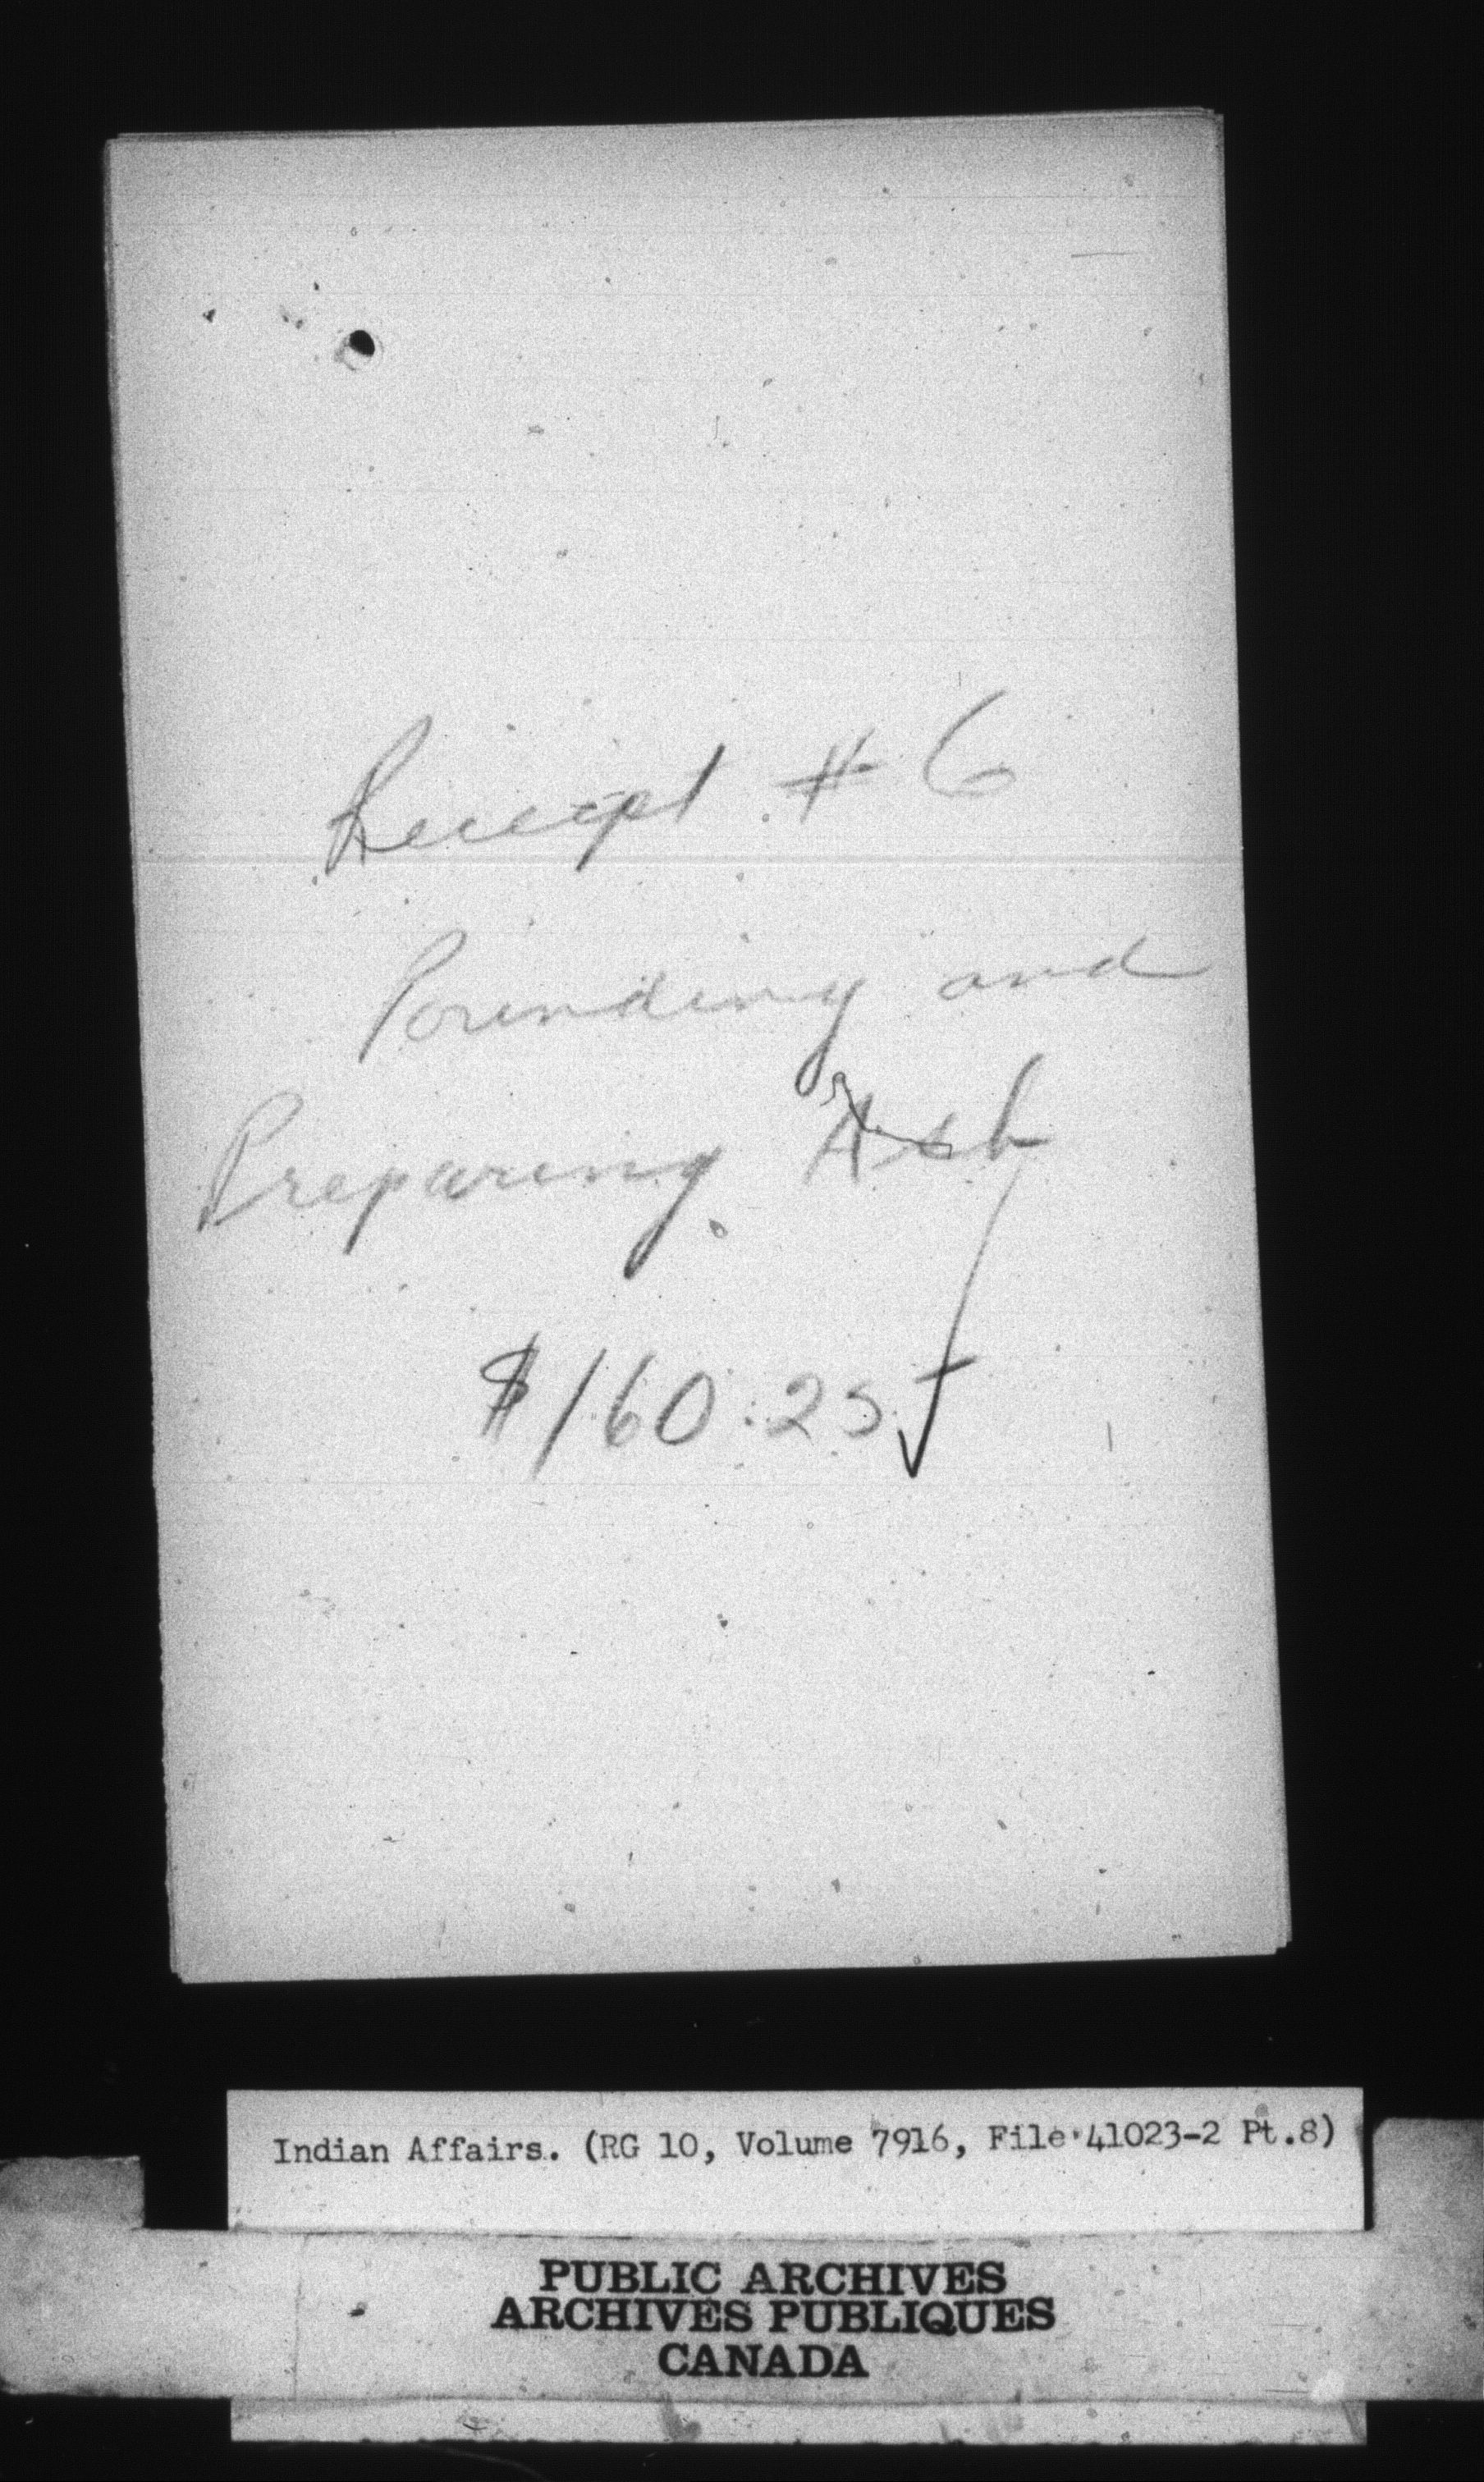 Receipt # 6
Pounding and
Preparing Ash
$160.25 ✓
Indian Affairs. (RG 10, Volume 7916, File 41023-2 Pt.8)
PUBLIC ARCHIVES
ARCHIVES PUBLIQUES
CANADA